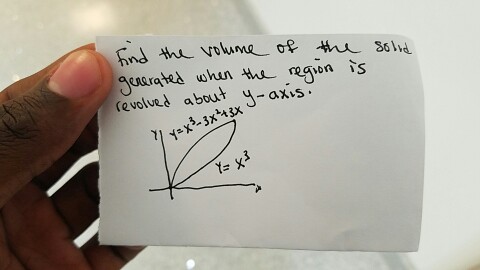 Find the volume of the solid
generated when the region is
revolved about y-axis.
y=x³-3x²+3x
y
y=x³
x